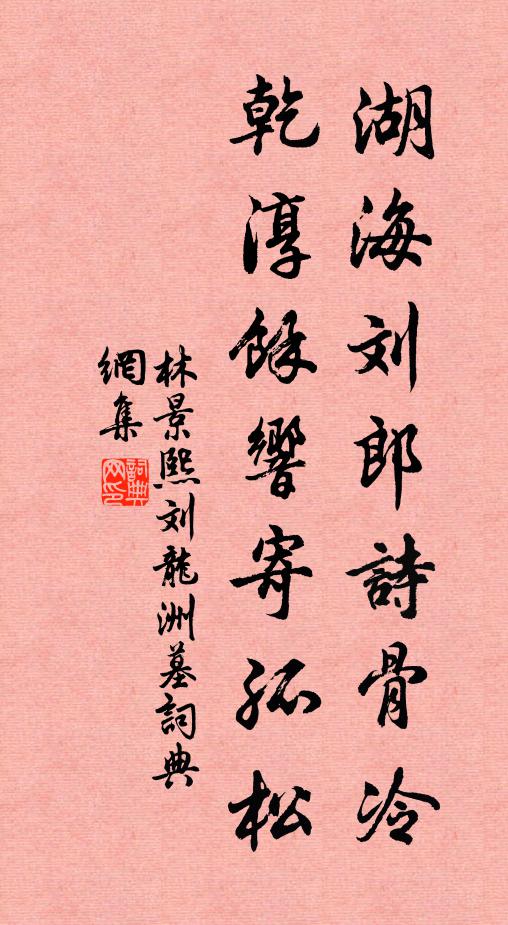 湖海刘郎詩骨冷
乾淳餘響寄孤松
林景熙刘龍洲墓詞典
網集
詞典
网印